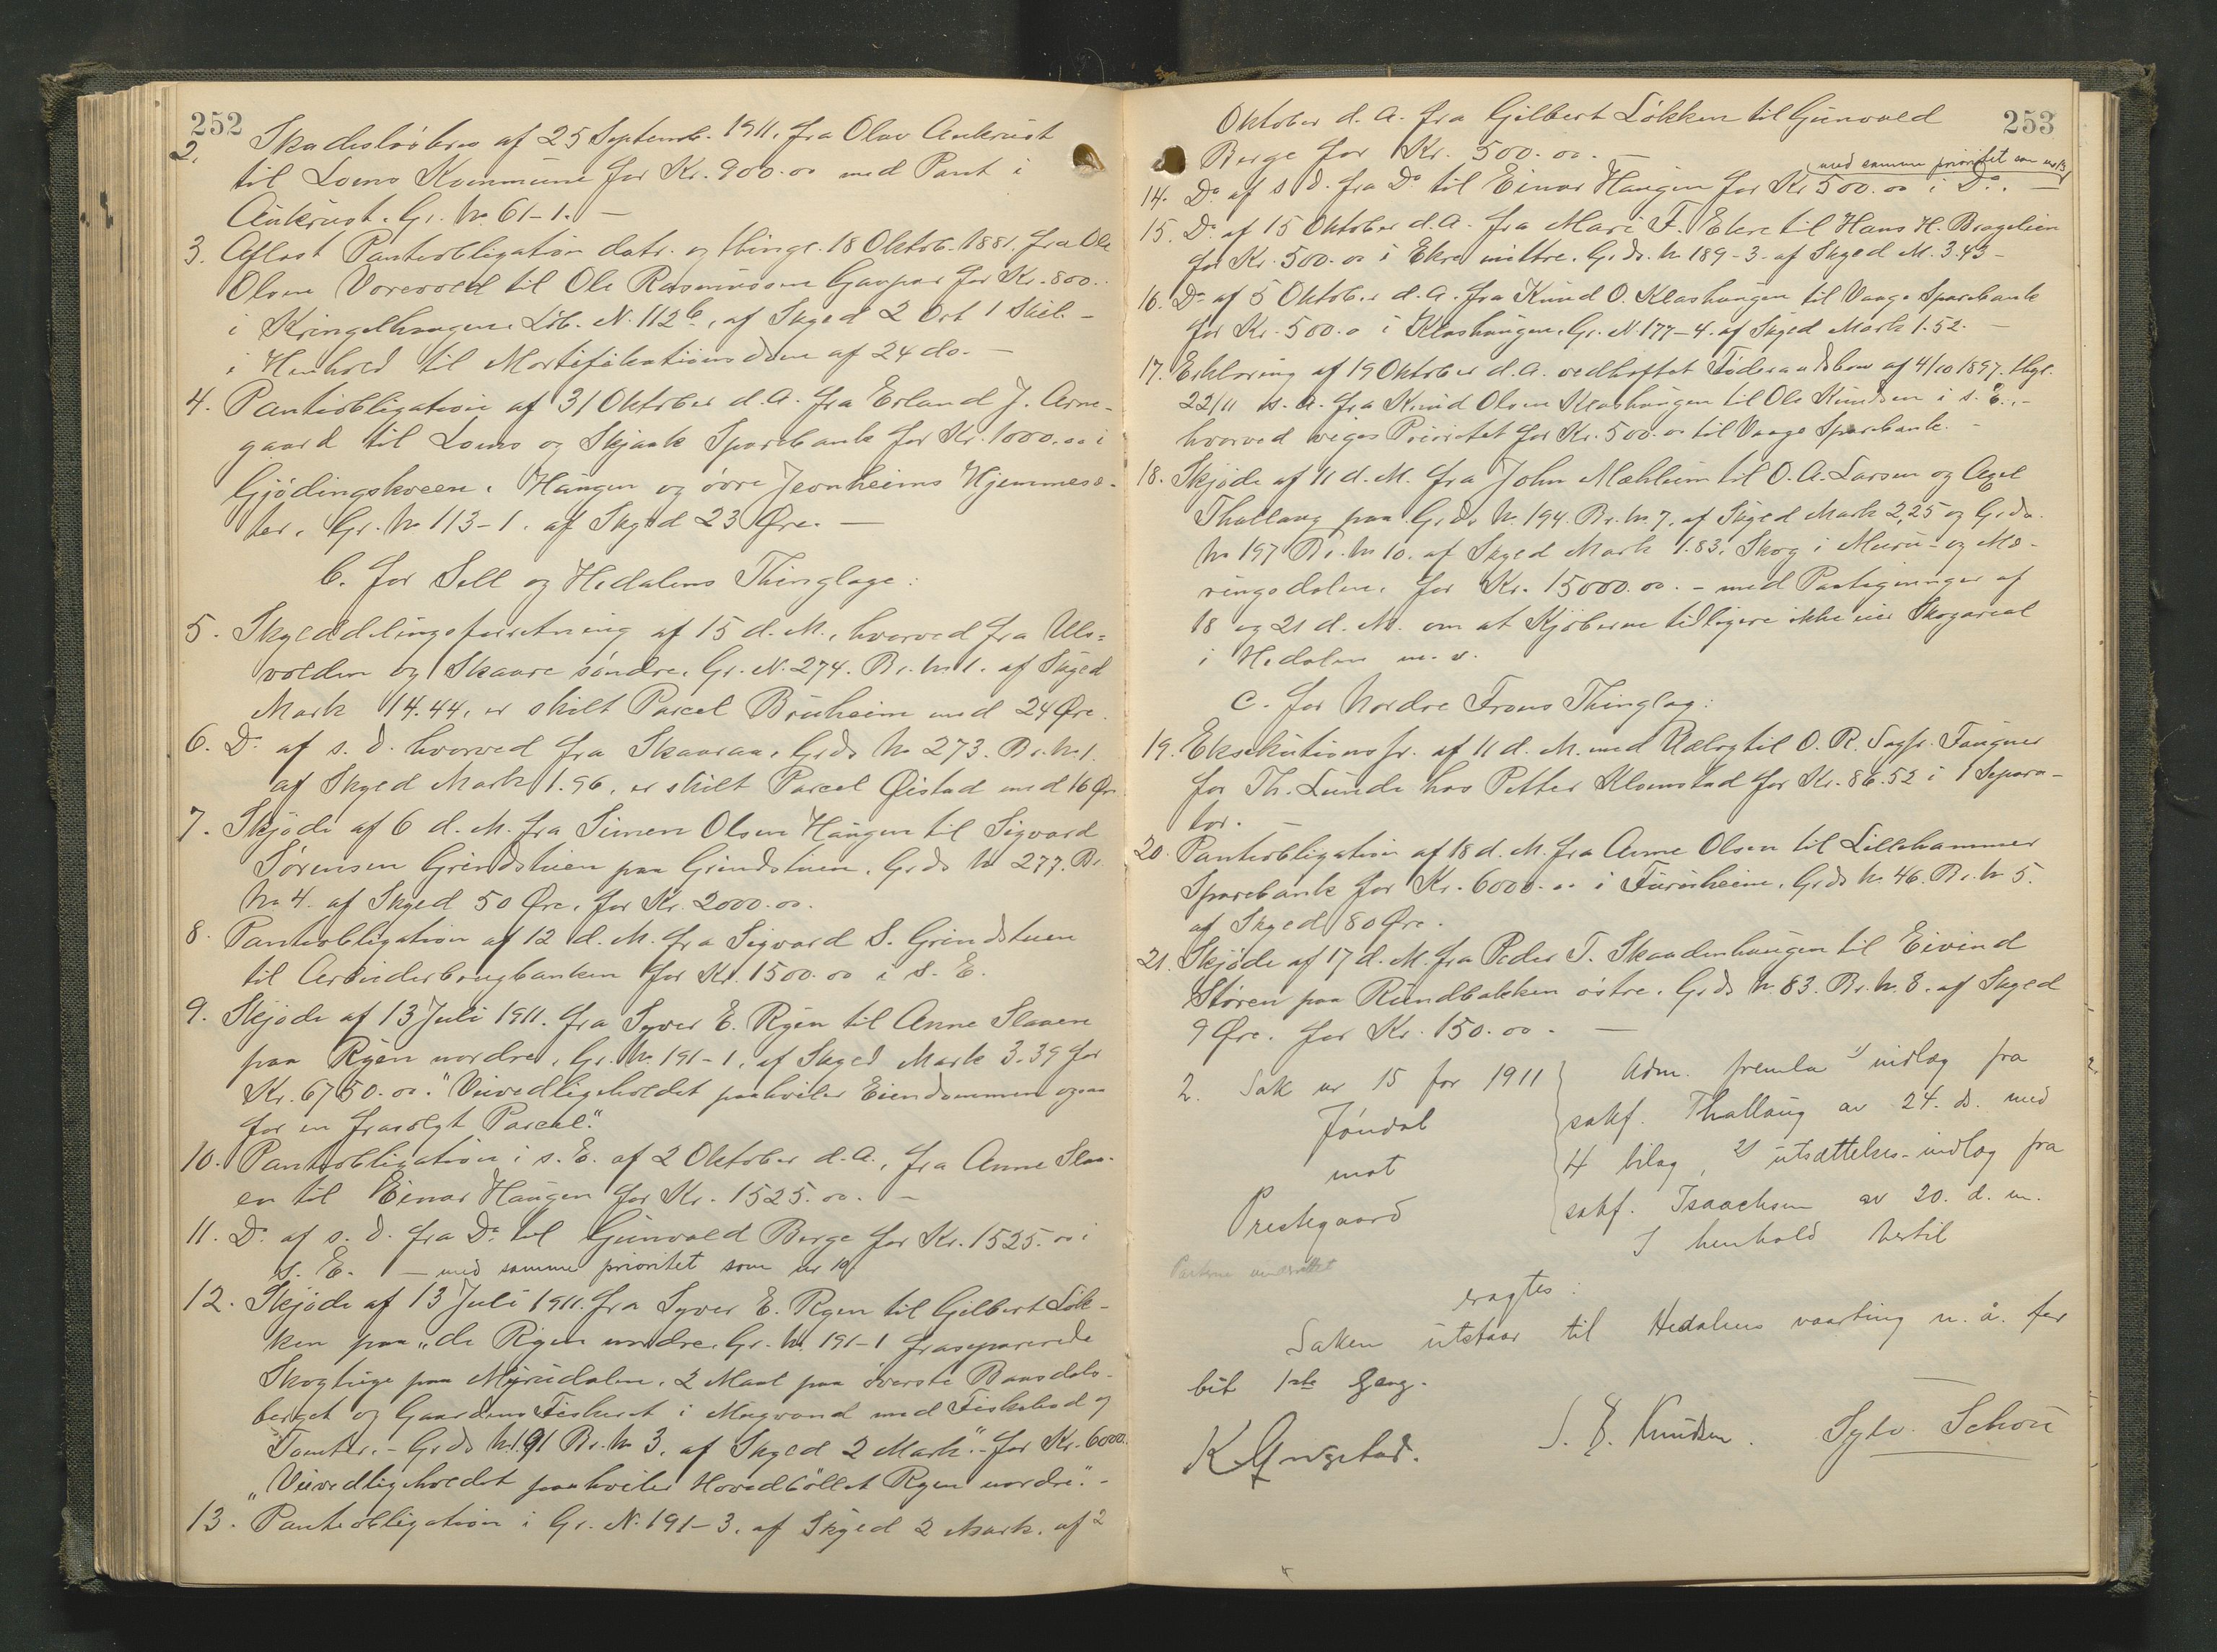 252
2. Skadesløsbrev af 25 Septemb. 1911. fra Olav Aukrust
til Loms Kommune for Kr. 900.00 med Pant i
Aukrust. Gr. No 61-1. —
3. Aflyst Panteobligation datr. og thingl. 18 Oktob. 1881. fra Ole
Olsen Vorevold til Ole Rasmussen Gaupar for Kr. 800..
i Kringelhaugen. Løb. N. 112b, af Skyld 2 Ort 1 Skil. -
i Henhold til Mortifikationsdom af 24 ds. —
4. Panteobligation af 31 Oktober d.A. fra Erland J. Arne-
gaard til Loms og Skjaak Sparebank for Kr. 1000.00 i
Gjödingskveen, Haugen og övre Jevnheims Hjemmesæ-
ter. Gr. No 113-1. af Skyld 23 Øre. —
b. for Sell og Hedalens Thinglage:
5. Skylddelingsforretning af 15 d.M., hvorved fra Uls=
volden og Skaare søndre. Gr. N. 274. Br. No 1. af Skyld
Mark 14.44, er skilt Parcel Bruheim med 24 Øre.
6. Do af s. D. hvorved fra Skaaraa, Grds No 273. Br. No 1.
af Skyld Mark 1.96, er skilt Parcel Øistad med 16 Øre
7. Skjöde af 6 d.M. fra Simen Olsen Haugen til Sigvard
Sørensen Grindstuen paa Grindstuen. Grds No 277. Br.
No 4. af Skyld 50 Øre. for Kr. 2000.00.
8. Panteobligation af 12 d.M. fra Sigvard S. Grindstuen
til Arbeiderbrugbanken for Kr. 1500.00 i s. E.
9. Skjöde af 13 Juli 1911. fra Syver E. Ryen til Anne Slaaen
paa Ryen nordre, Gr. No. 191-1, af Skyld Mark 3.39 for
Kr. 6750.00. "Veivedligeholdet paahviler Eiendommen ogsaa
for en frasolgt Parcel."
10. Panteobligation i s. E. af 2 Oktober d.A., fra Anne Slaa-
en til Einar Haugen for Kr. 1525.00. —
11. Do af s. D. fra Do til Gunvald Berge for Kr. 1525.00 i
s. E. — med samme prioritet som nr 10
12. Skjöde af 13 Juli 1911. fra Syver E. Ryen til Gilbert Løk-
ken paa "de Ryen nordre Gr. No. 191-1 fraseparerede
Skogteige paa Myrudalen, 2 Maal paa øverste Baasdals-
berget og Gaardens Fiskeret i Mugvand med Fiskebod og
Tomter. - Grds No. 191 Br. No 3. af Skyld 2 Mark". - for Kr. 6000.
"Veivedligeholdet paahviler Hovedbölet Ryen nordre." -
13. Panteobligation i Gr. N. 191-3. af Skyld 2 Mark. af 2
253
Oktober d.A. fra Gilbert Løkken til Gunvald
Berge for Kr. 500.00. —
med samme prioritet som nr 13
14. Do af s. D. fra Do til Einar Haugen for Kr 500.00 i Do. —
15. Do af 15 Oktober d.A. fra Mari F. Ekre til Hans H. Bragelien
for Kr. 500.00 i Ekre mittre. Grds. No 189-3. af Skyld M. 3.43 -
16. Do af 5 Oktober d.A. fra Knud O. Klashaugen til Vaage Sparebank
for Kr. 500.0 i Klashaugen. Gr. N 177-4. af Skyld Mark 1.52. —
17. Erklæring af 19 Oktober d.A. vedheftet Føderaadsbrev af 4/10 1897. thgl.
22/11 s. A. fra Knud Olsen Klashaugen til Ole Knudsen i s. E. -
hvorved viges Prioritet for Kr. 500.00 til Vaage Sparebank. -
18. Skjöde af 11 d.M. fra John Mæhlum til O.A. Larsen og Axel
Thallaug paa Grds No. 194. Br. No. 7. af Skyld Mark 2,25 og Grds.
No 197 Br. No 10. af Skyld Mark 1.83. Skog i Muru- og Mæ-
ringsdalen. for Kr. 15000.00. - med Paategninger af
18 og 21 d.M. om at Kjøberne tidligere ikke eier Skogareal
i Hedalen m.v.
c. for Nordre Frons Thinglag:
19. Eksekutionsfr. af 11 d.M. med Udlæg til O.R. Sagfr. Faugner
for Th. Lunde hos Petter Klomstad for Kr. 86.52 i 1 Separa-
tor. —
20. Panteobligation af 18 d.M. fra Arne Olsen til Lillehammer
Sparebank for Kr. 6000.00 i Furuheim. Grds No. 46. Br. No 5.
af Skyld 80 Øre.
21. Skjöde af 17 d.M. fra Peder T. Skaadenhaugen til Eivind
Støren paa Rundbakken østre. Grds No. 83. Br. No. 8. af Skyld
9 Øre. for Kr. 150.00. —
2. Sak nr 15 for 1911
Jöndal
mot
Prestegaard
Adm. fremla 1) indlæg fra
sakf. Thallaug av 24. ds. med
4 bilag, 2) utsættelses-indlæg fra
sakf. Isaachsen av 20. d. m.
I henhold hertil
Parterne underrettet
eragtes:
Saken utstaar til Hedalens vaarting n. å. for
bit 1ste Gang.
K Angstad. S. E. Knudsen. Sylv. Schou